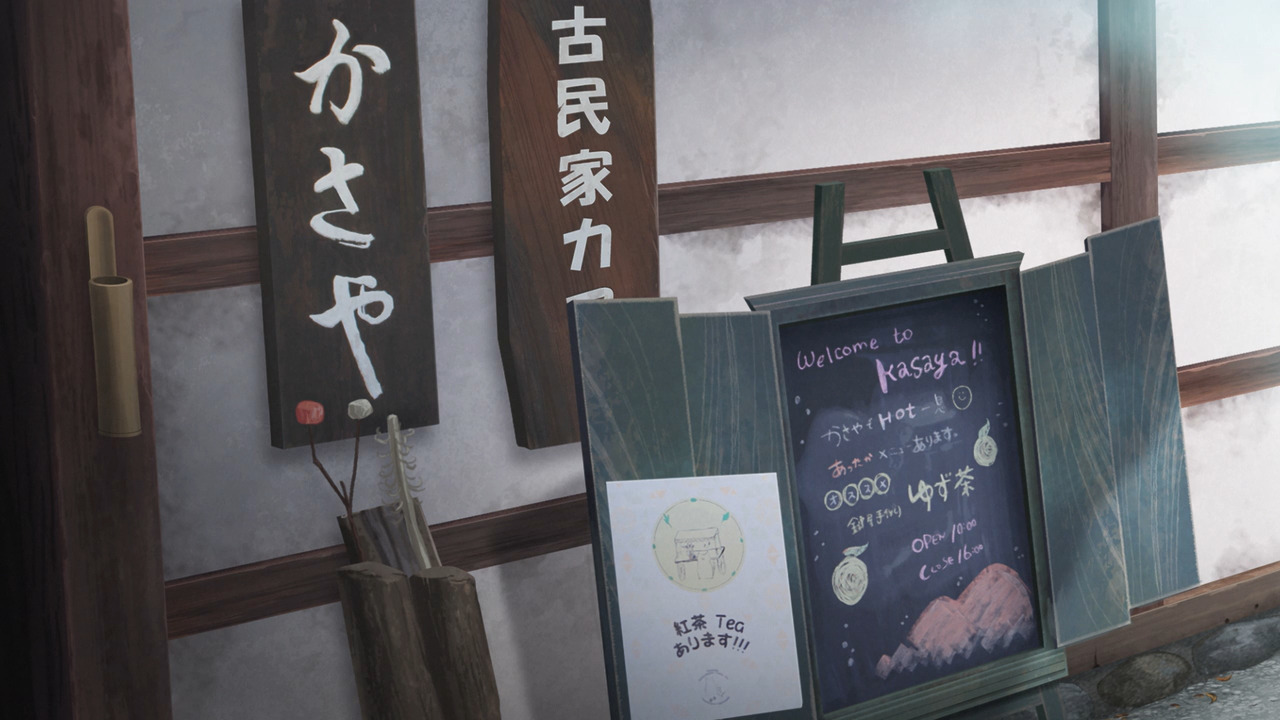 かさや
古民家カフ
Welcome to
Kasaya!!
かさやで Hot 一息
あったかメニューあります。
オススメ
ゆず茶
手作り
OPEN 10:00
CLOSE 16:00
紅茶 Tea
あります!!!